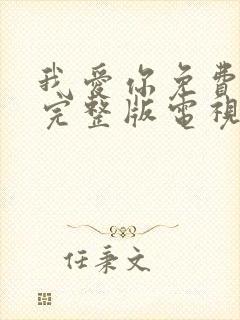 我愛你免費
完整版電視
任秉文